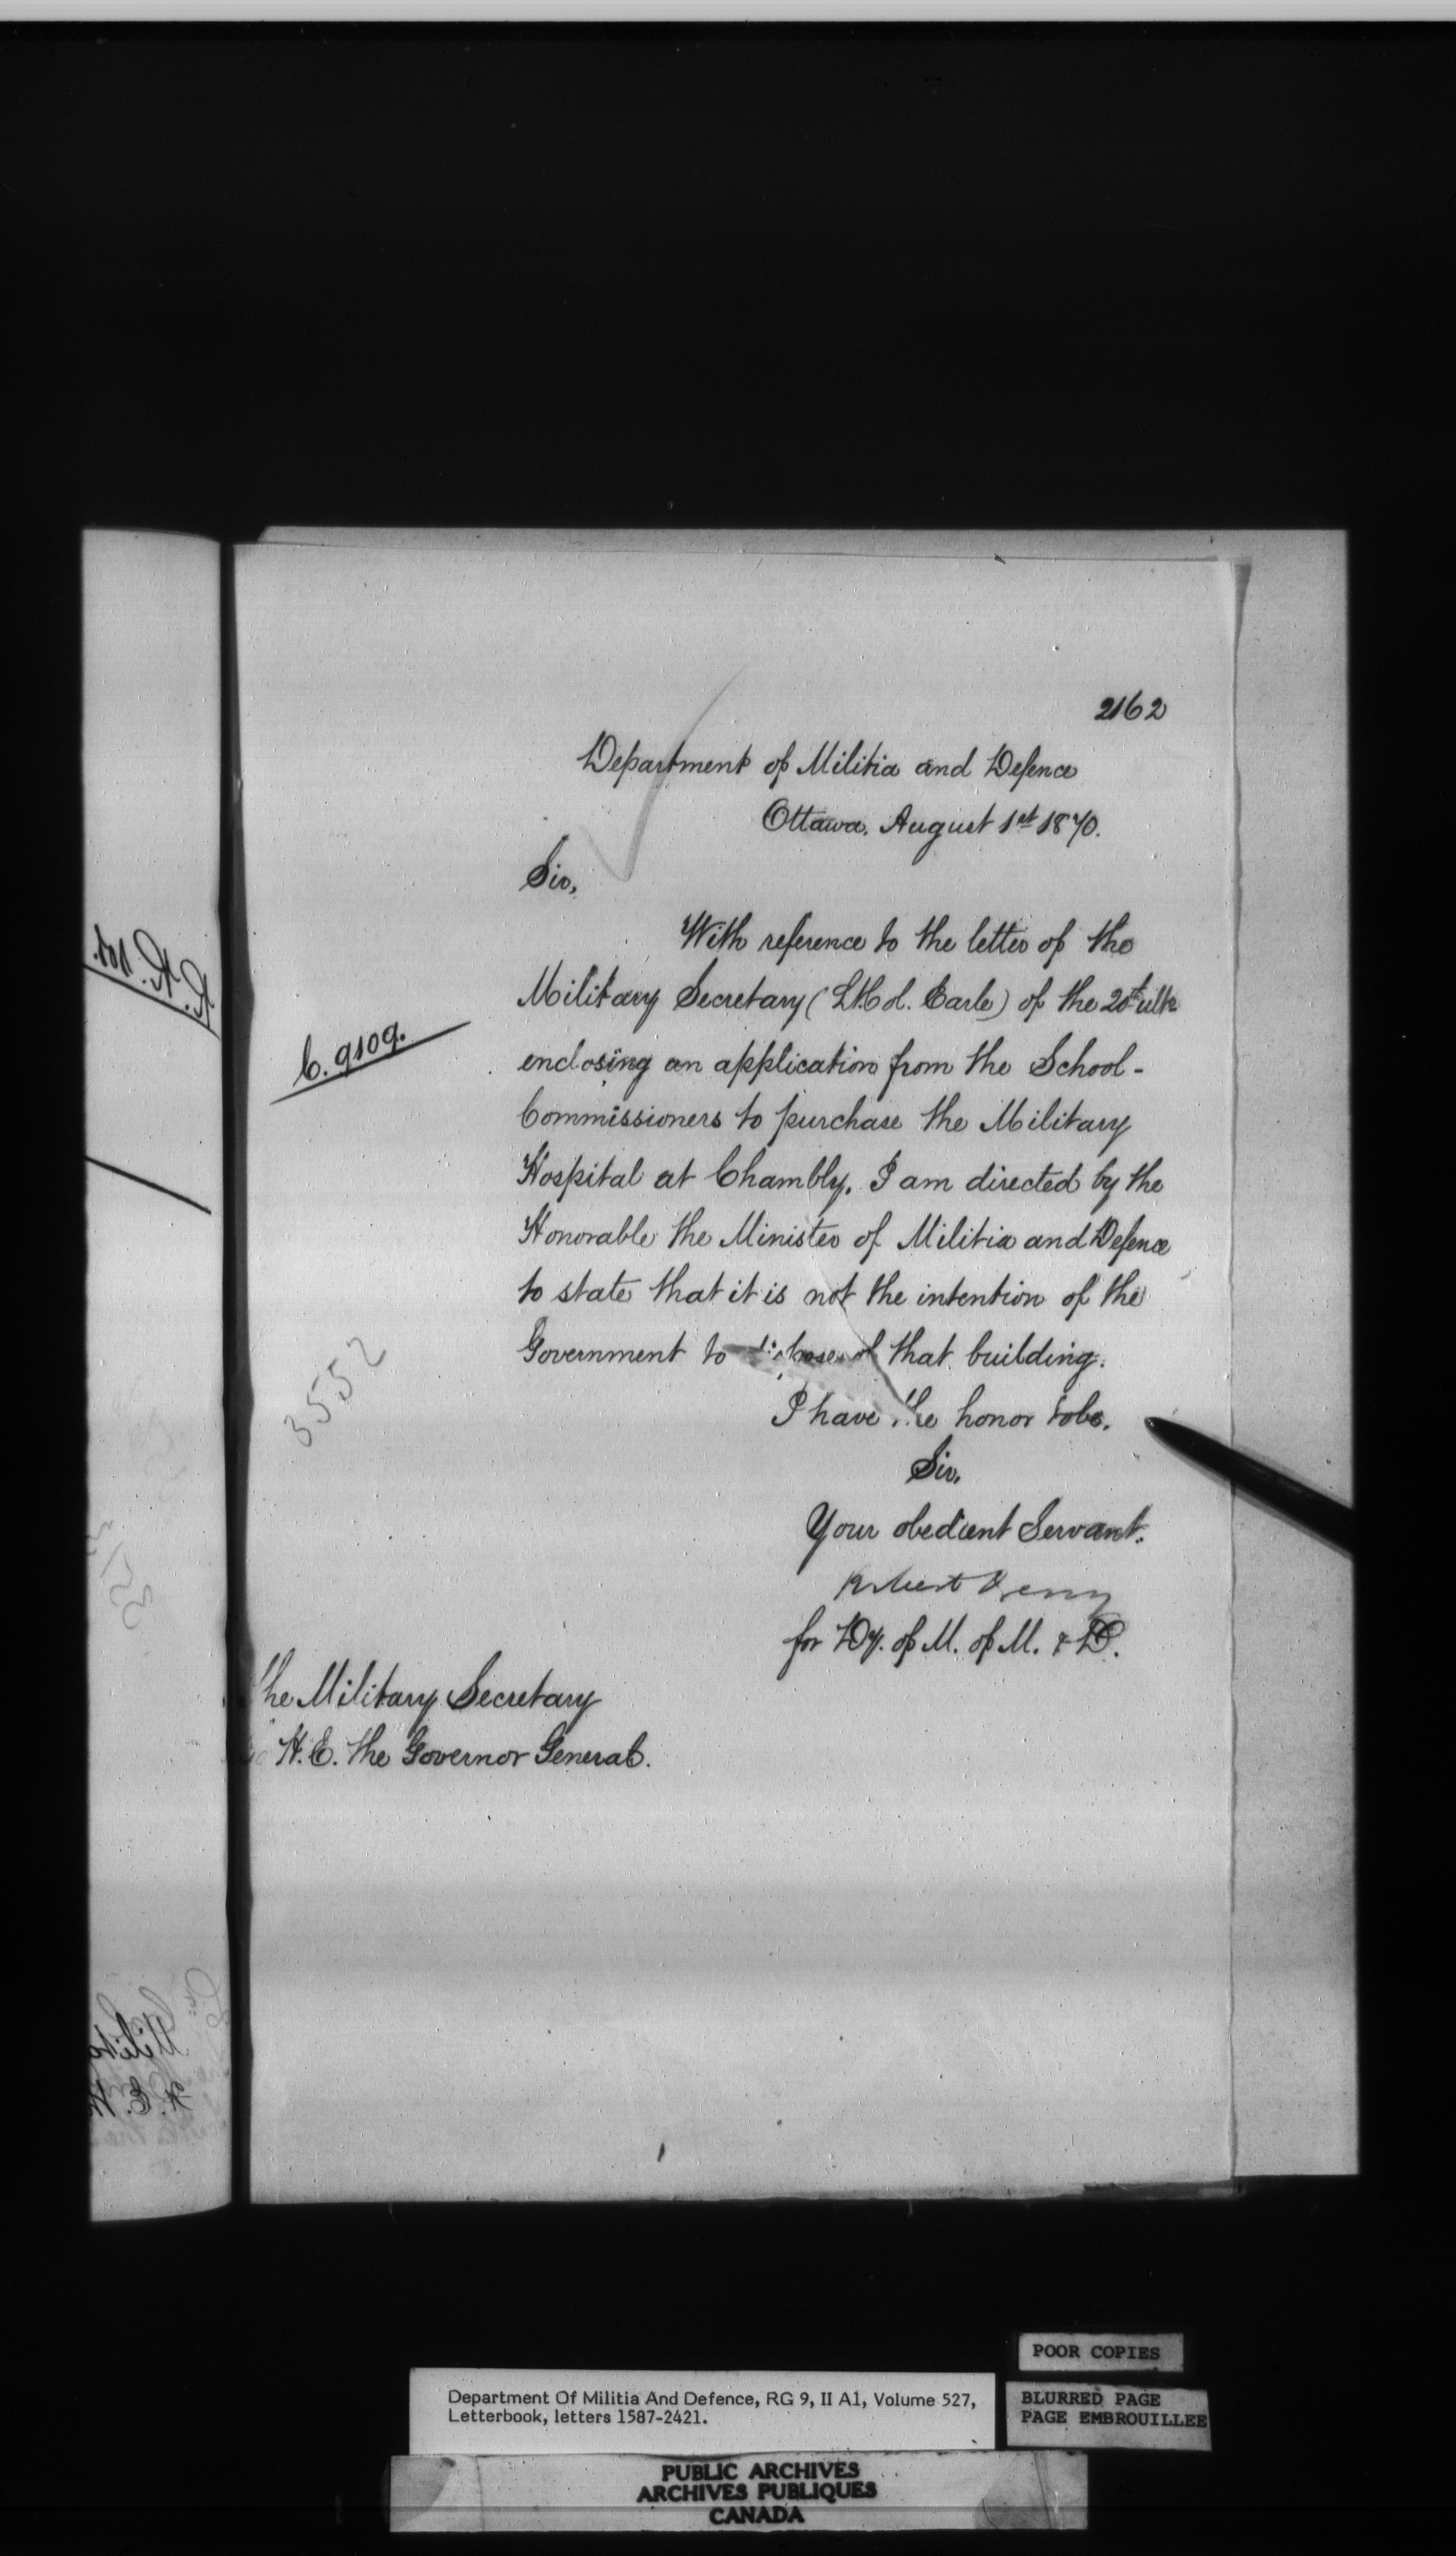 2162
Department of Militia and Defence
Ottawa. August 1st 1870.
Sir,
With reference to the letter of the
Military Secretary (Lt Col. Earle) of the 20th ulto
C. 9109.
enclosing an application from the School-
Commissioners to purchase the Military
Hospital at Chambly. I am directed by the
Honorable the Minister of Militia and Defence
to state that it is not the intention of the
Government to dispose of that building.
3552
I have the honor to be,
Sir,
Your obedient Servant.
Robert
for Dy. of M. of M. & D.
The Military Secretary
to H. E. the Governor General.
POOR COPIES
BLURRED PAGE
PAGE EMBROUILLEE
Department Of Militia And Defence, RG 9, II A1, Volume 527,
Letterbook, letters 1587-2421.
PUBLIC ARCHIVES
ARCHIVES PUBLIQUES
CANADA